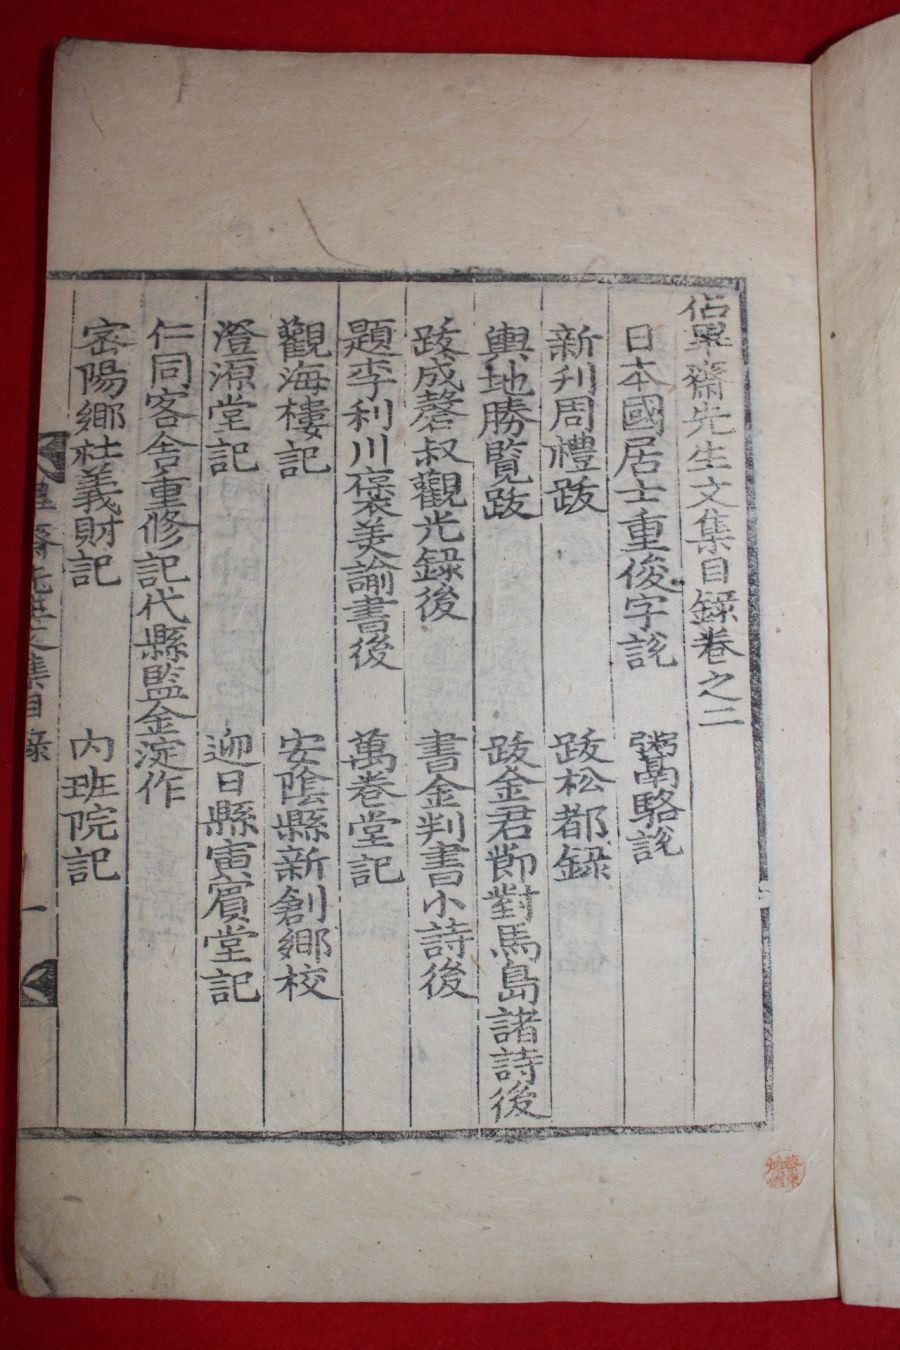 佔畢齋先生文集目錄卷之二
日本國居士重俊字說 鬻駱說
新刋周禮跋 跋松都錄
輿地勝覽跋 跋金君節對馬島諸詩後
跋成磬叔觀光錄後 書金判書小詩後
題李利川褒美諭書後 萬卷堂記
觀海樓記 安陰縣新創鄉校
澄源堂記 迎日縣寅賓堂記
仁同客舍重修記代縣監金淀作
密陽鄉社義財記 內班院記
畢齋先生文集目錄 一